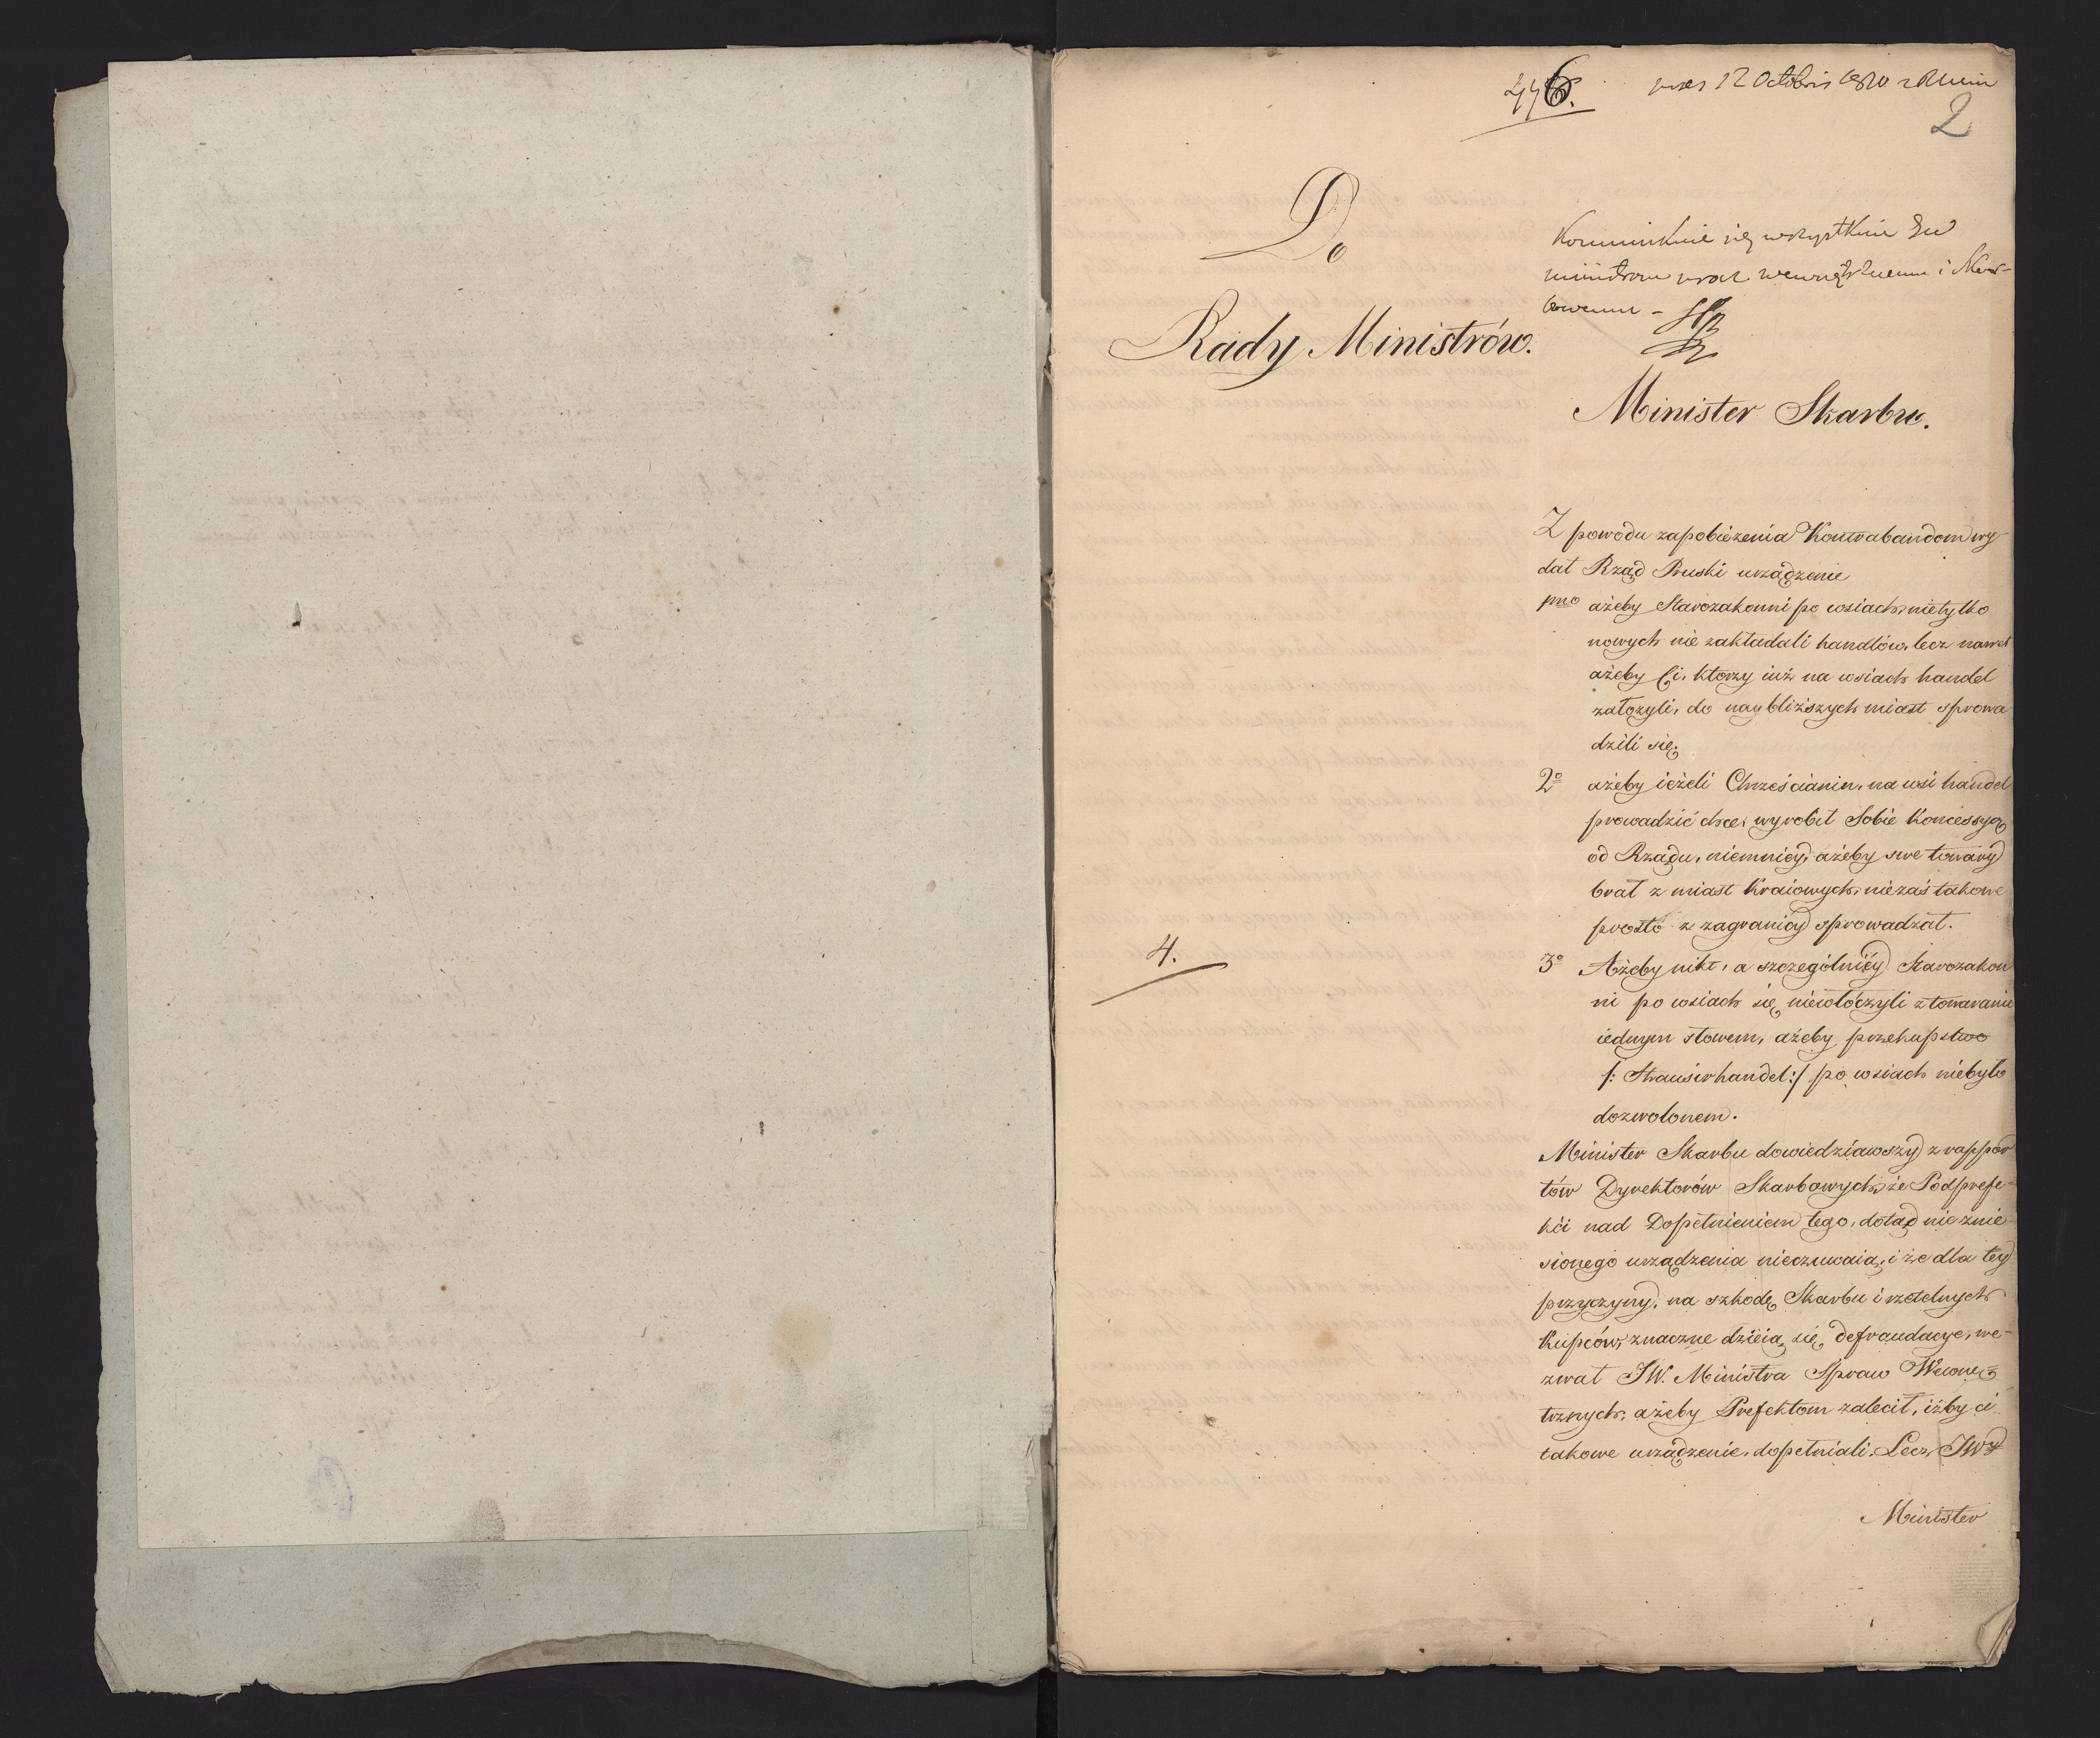 6.
12 Octobris 1810
2
Do
Rady Ministrów.
Kommunikuie się wszystkim
ministrom wewnętrznemu i Skar-
bowemu -
Minister Skarbu.
Z powodu zapobieżenia Kontrabandom wy-
dał Rząd Pruski urządzenie
pmo ażeby Starozakonni po wsiach, nietylko
nowych nie zakładali handlów, lecz nawet
ażeby Ci, ktorzy iuż na wsiach handel
założyli, do naybliższych miast sprowa
dzili się.
2o ażeby ieżeli Chrześcianin, na wsi handel
prowadzić chce, wyrobił Sobie Koncessyą
od Rządu, niemniey, ażeby swe towary
brał z miast Kraiowych, niezaś takowe
prosto z zagranicy sprowadzał.
3o Ażeby nikt, a szczególniey Starozakon
ni po wsiach się niewłóczyli z towarami
iednym słowem, ażeby przekupstwo
/: Strausirhandel :/ po wsiach niebyło
dozwolonem.
4.
Minister Skarbu dowiedziawszy z rappor
tów Dyrektorów Skarbowych, że Podprefe-
kci nad Dopełnieniem tego, dotąd nie znie-
sionego urządzenia nieczuwaią, i że dla tey
przyczyny, na szkodę Skarbu i rzetelnych
Kupców, znaczne dzieią się defraudacye, we-
zwał JW. Ministra Spraw Wewnę-
trznych, ażeby Prefektom zalecił, iżby ci
takowe urządzenie, dopełniali. Lecz, JWy
Minister